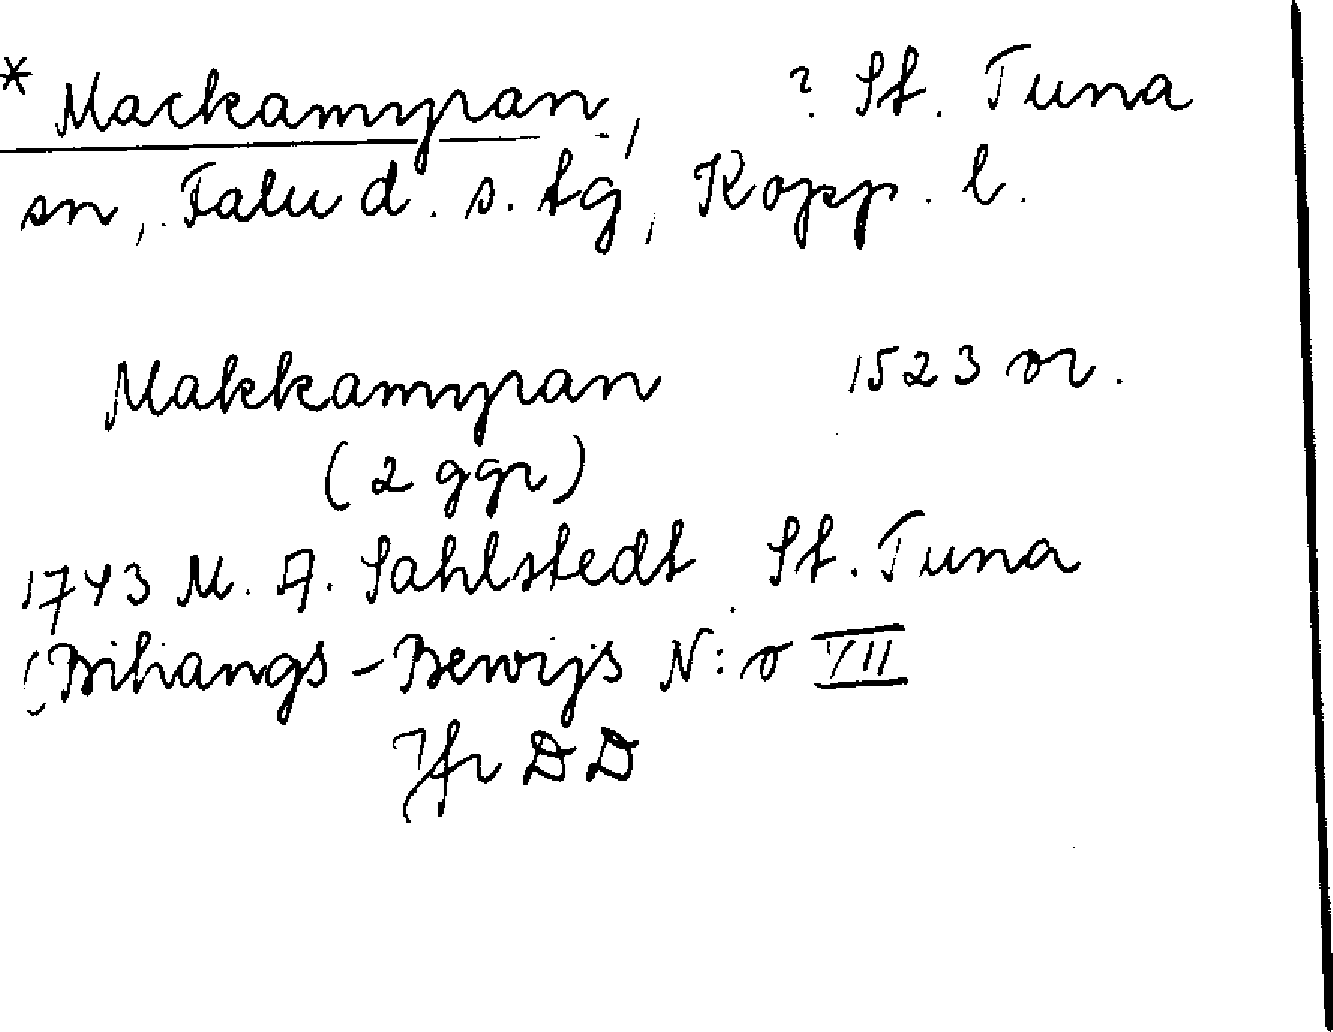 * Mackamyran, ? St. Tuna
sn, Falu d. s. tg, Kopp. l.
Makkamyran 1523 or.
(2 ggr)
1743 M. A. Sahlstedt St. Tuna
(Bihangs-Bewijs N:o VII
Jfr DD